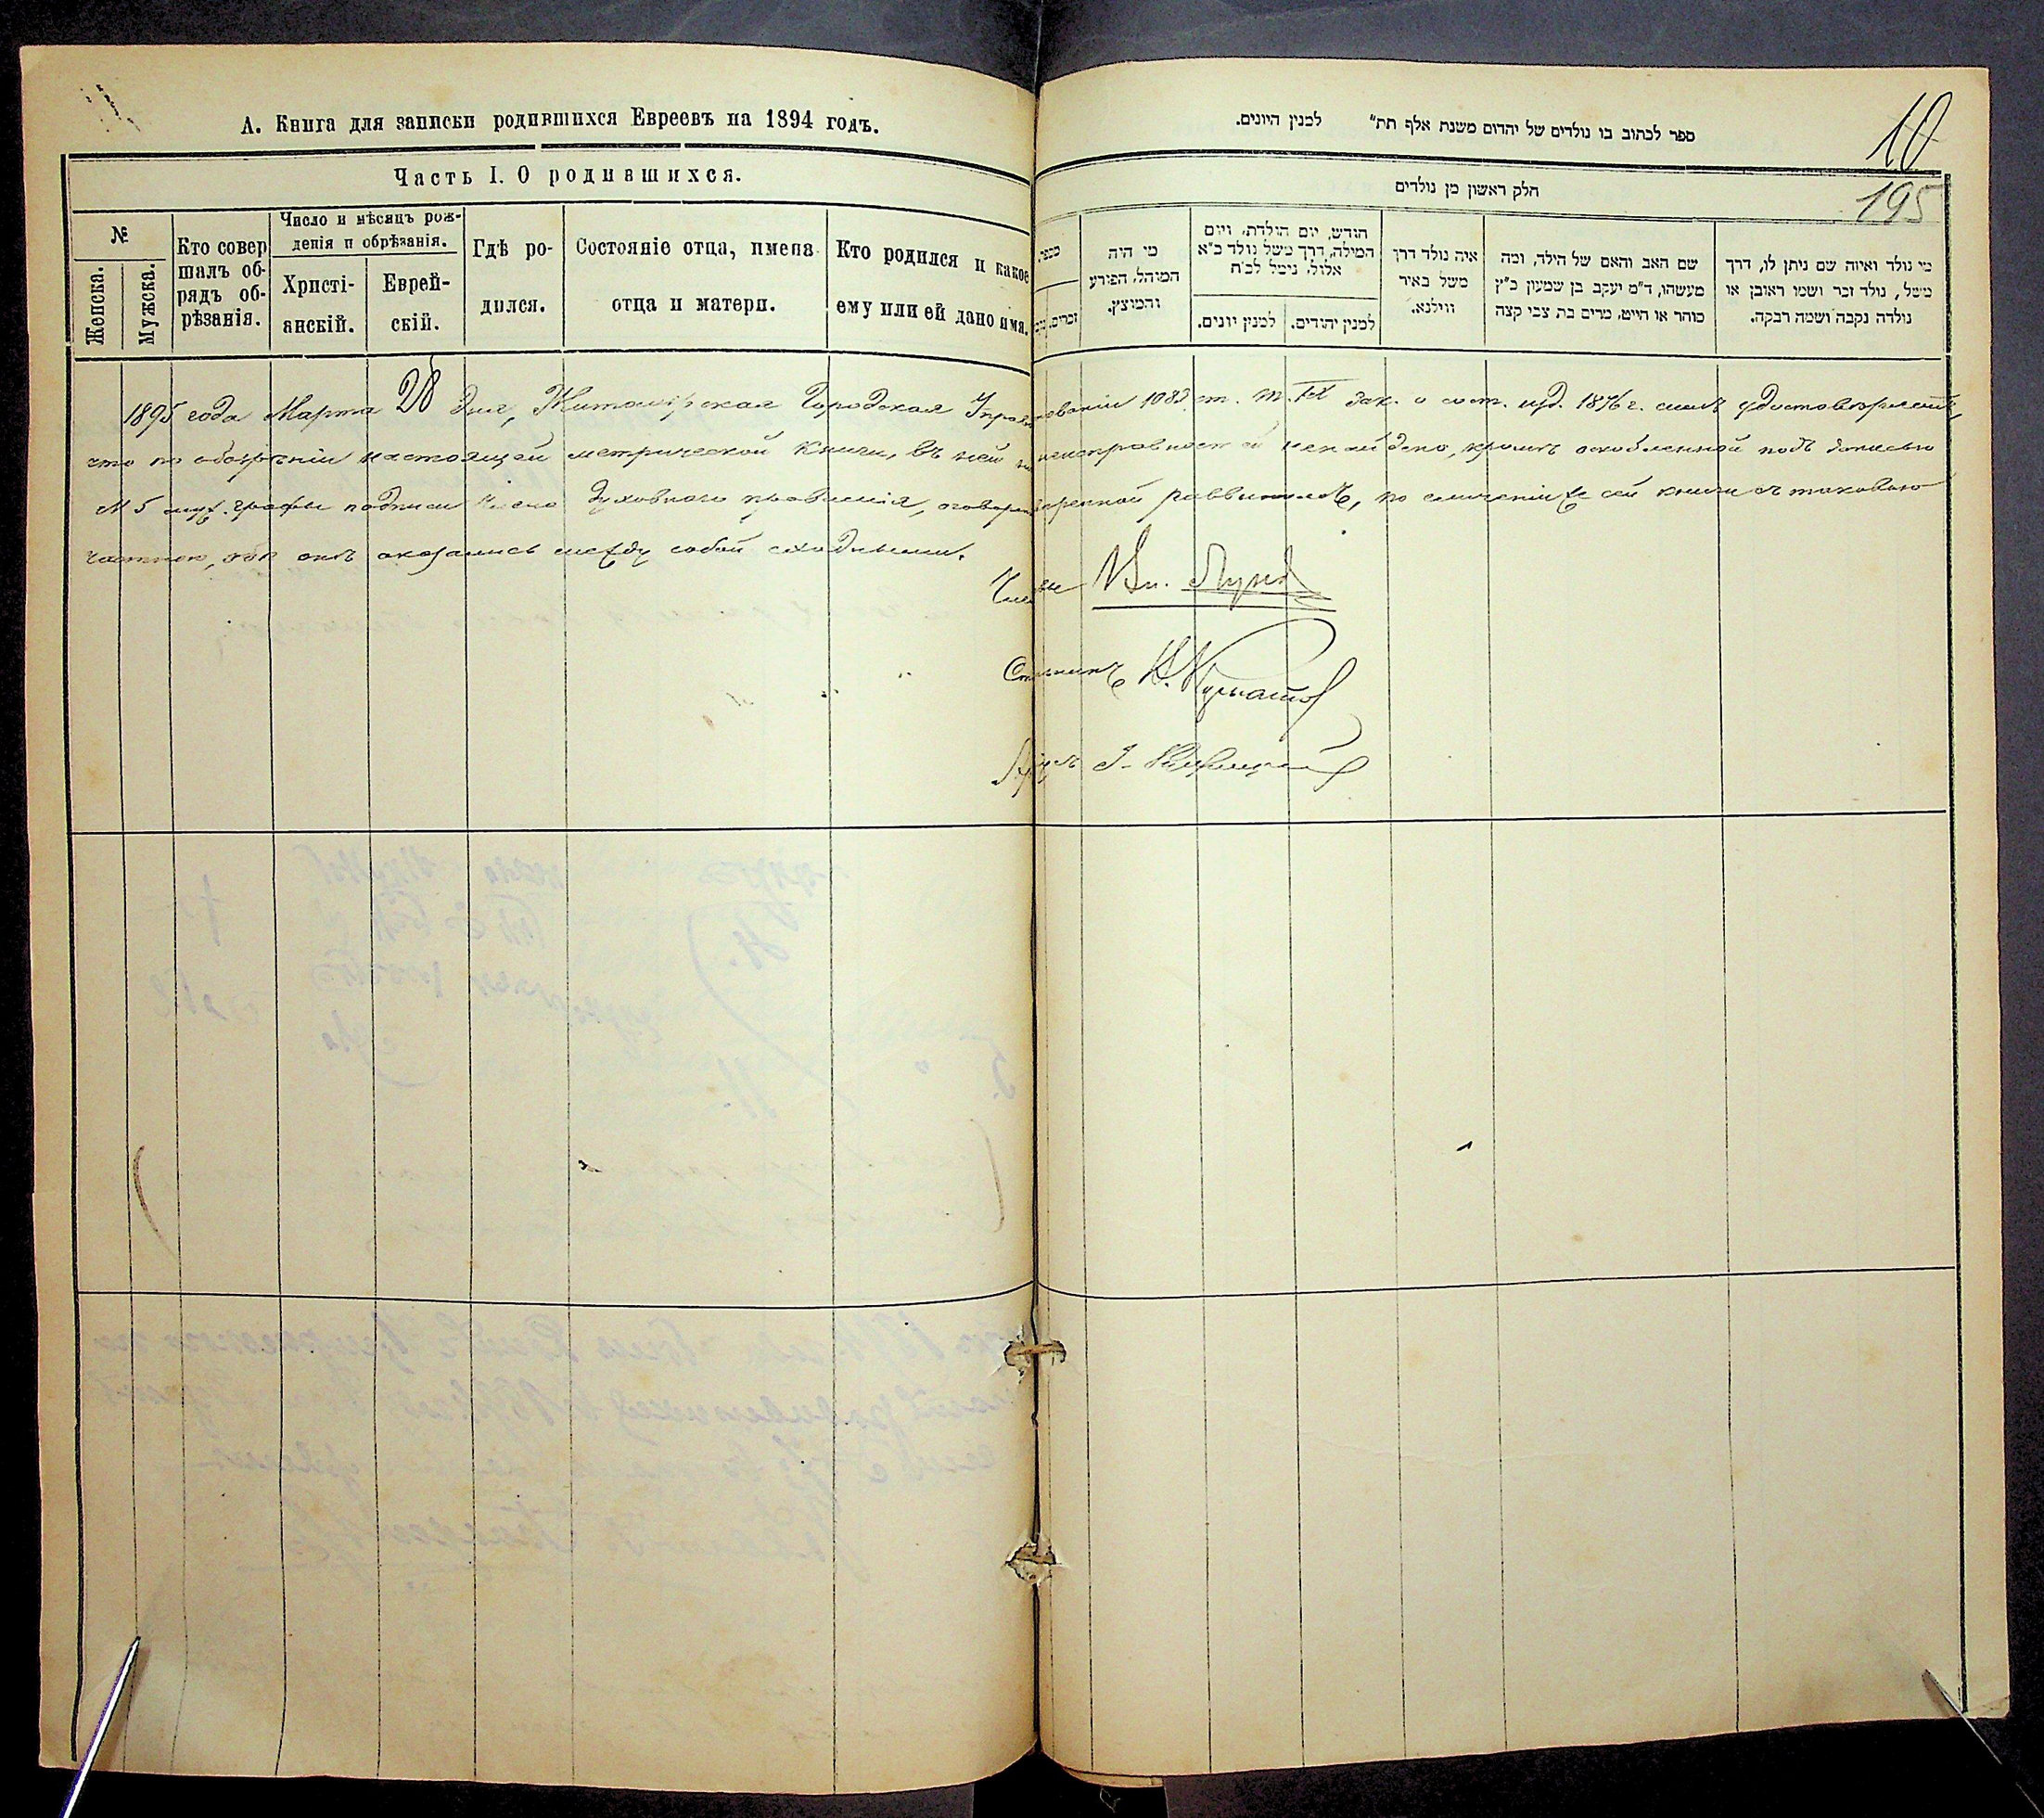 А. Книга для записки родившихся Евреевъ на 1894 годъ.
Часть I. О родившихся.
№
Женска.
Мужска.
Кто совер
шалъ об-
рядъ об-
рѣзанія.
Число и мѣсяцъ рож-
денія и обрѣзанія.
Христі-
анскій.
Еврей-
скій.
Гдѣ ро-
дился.
Состояніе отца, имена
отца и матери.
Кто родился и какое
ему или ей дано имя.
ספר לכתוב בו נולדים של יהדום משנת אלף תת״ למנין היונים.
10
195
חלק ראשון מן נולדים
מספר.
זכרים.
מי היה
המוהל, הפורע
והמוצץ.
חודש, יום הולדת, ויום
המילה, דרך משל נולד כ״א
אלול, נימל לכ״ח
למנין יונים.
למנין יהודים.
איה נולד דרך
משל באיר
ווילנא.
שם האב והאם של הילד, ומה
מעשהו, ד״מ יעקב בן שמעון כ״ץ
סוחר או חייט, מרים בת צבי קצה
מי נולד ואיזה שם ניתן לו, דרך
משל, נולד זכר ושמו ראובן או
נולדה נקבה ושמה רבקה.
1895 года Марта 28 дня, Житомірская Городская Управа на основаніи 1082 ст. т. IX зак. о сост. изд. 1876 г. симъ удостовѣряетъ,
что по обозрѣніи настоящей метрической книги, въ ней неисправностей не найдено, кромѣ оскобленной подъ записью
№ 5 муж. графы подписи члена Духовнаго правленія, оговоренной раввиномъ, по сличеніи же сей книги съ таковою
частною, обѣ онѣ оказались между собой сходными.
Членъ